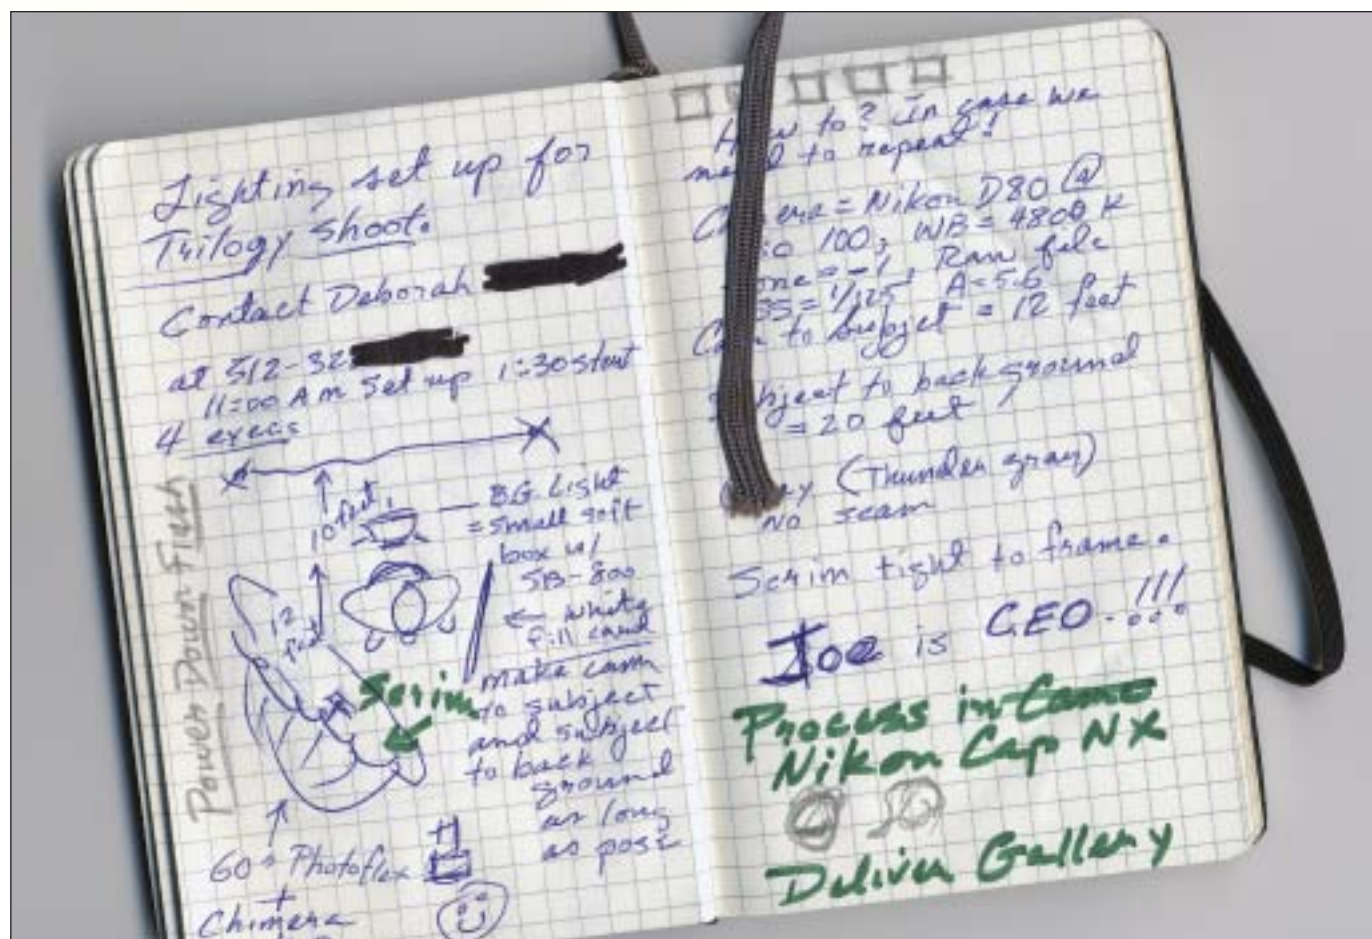 Lighting set up for
Trilogy shoot.
Contact Deborah
at 512-32
11:00 Am Set up 1:30 start
4 execs
10 feet
B.G. Light
= small soft
box w/
SB-800
← white
fill card
12 feet
Scrim
make cam
to subject
and subject
to back
ground
as long
as poss
Power Down Flash
60" Photoflex
+
Chimera
How to? In case we
need to repeat!
Camera = Nikon D80 @
ISO 100, WB = 4800 K
Tone = -1, Raw file
SS = 1/125 A = 5.6
Cam to subjet = 12 feet
Subject to back ground
= 20 feet
(Thunder gray)
No seam
Scrim tight to frame.
Joe is CEO !!!
Process in Came
Nikon Cap NX
Deliver Gallery